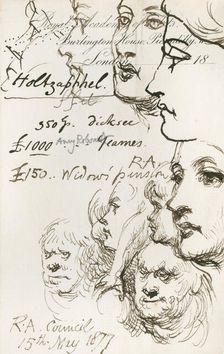 Royal Academy of
Burlington House, Piccadilly, W.
London
18
Holtzapphel.
350 Gs. Dicksee
£1000
£150.. Widows pension
R.A.
R.A. Council
15th May 1877